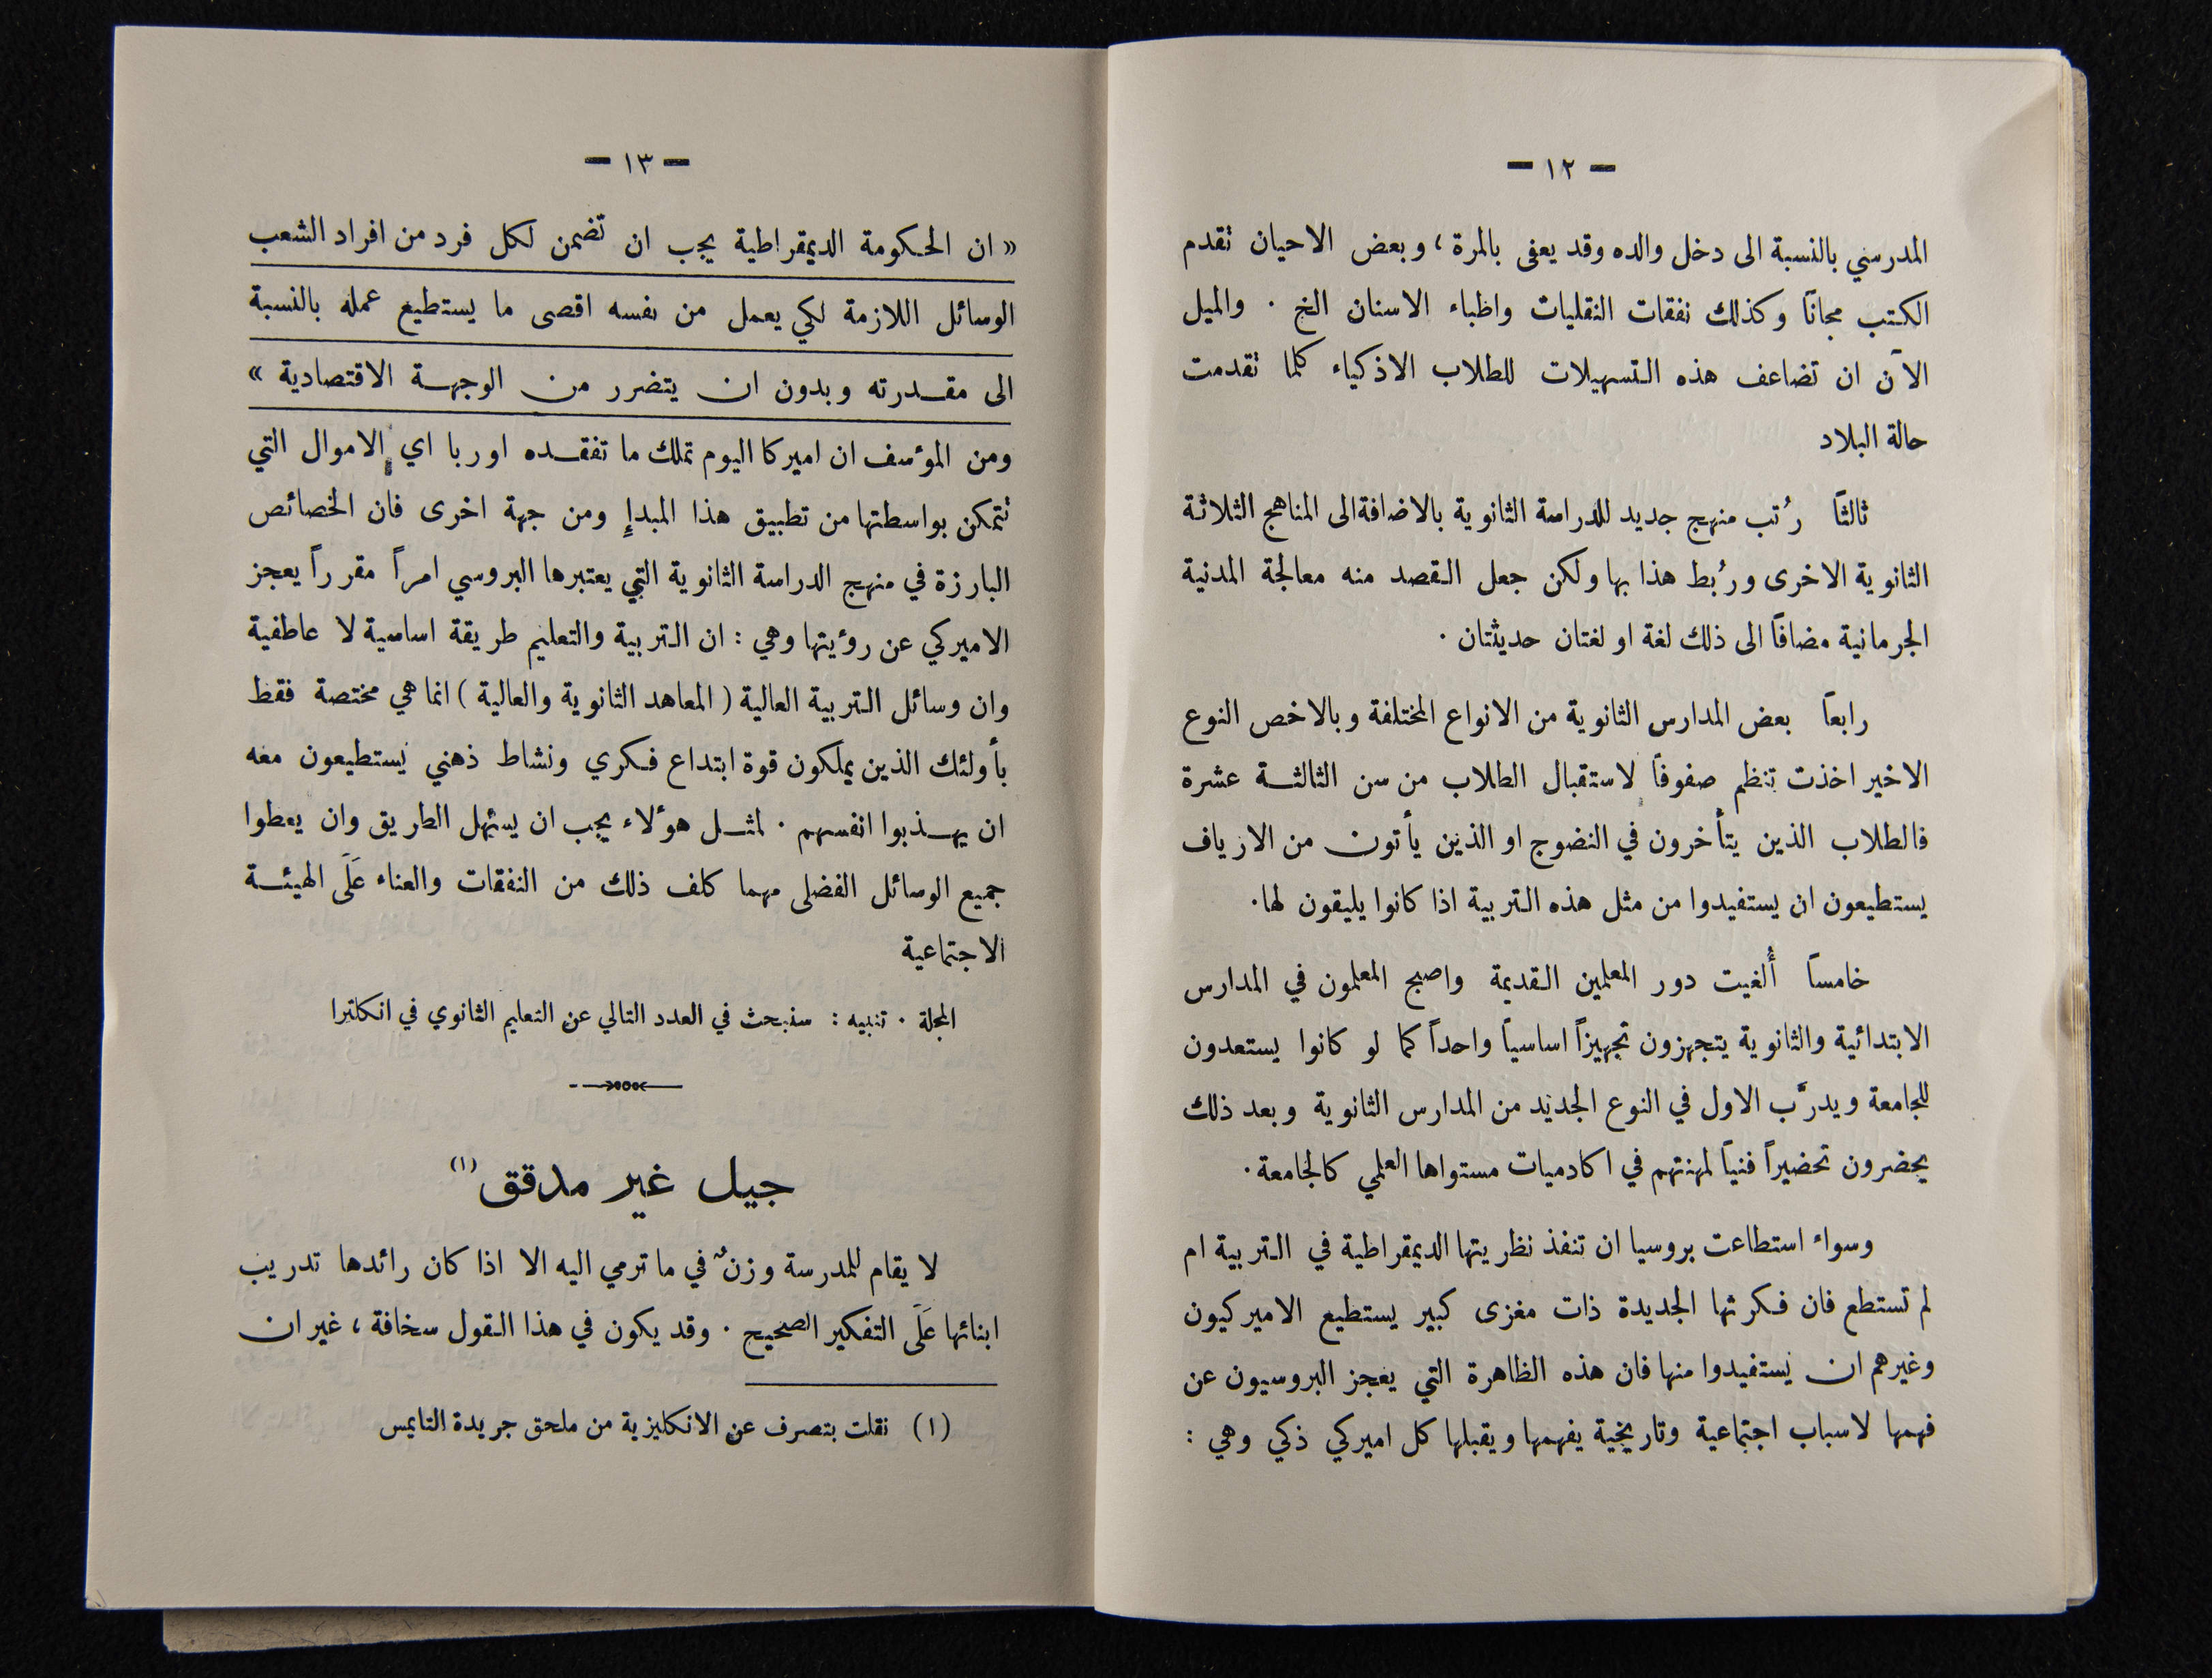 — ١٢ —
المدرسي بالنسبة الى دخل والده وقد يعفى بالمرة ، وبعض الاحيان تقدم
الكتب مجاناً وكذلك نفقات النقليات واظباء الاسنان الخ . والميل
الآن ان تضاعف هذه التسهيلات للطلاب الاذكياء كلما تقدمت
حالة البلاد
ثالثاً رُتب منهج جديد للدراسة الثانوية بالاضافة الى المناهج الثلاثة
الثانوية الاخرى ورُبط هذا بها ولكن جعل القصد منه معالجة المدنية
الجرمانية مضافاً الى ذلك لغة او لغتان حديثتان .
رابعاً بعض المدارس الثانوية من الانواع المختلفة وبالاخص النوع
الاخير اخذت تنظم صفوفاً لاستقبال الطلاب من سن الثالثة عشرة
فالطلاب الذين يتأخرون في النضوج او الذين يأتون من الارياف
يستطيعون ان يستفيدوا من مثل هذه التربية اذا كانوا يليقون لها .
خامساً أُلغيت دور المعلمين القديمة واصبح المعلمون في المدارس
الابتدائية والثانوية يتجهزون تجهيزاً اساسياً واحداً كما لو كانوا يستعدون
للجامعة ويدرَّب الاول في النوع الجديد من المدارس الثانوية وبعد ذلك
يحضرون تحضيراً فنياً لمهنتهم في اكادميات مستواها العلمي كالجامعة .
وسواء استطاعت بروسيا ان تنفذ نظريتها الديمقراطية في التربية ام
لم تستطع فان فكرتها الجديدة ذات مغزى كبير يستطيع الاميركيون
وغيرهم ان يستفيدوا منها فان هذه الظاهرة التي يعجز البروسيون عن
فهمها لاسباب اجتماعية وتاريخية يفهمها ويقبلها كل اميركي ذكي وهي :
— ١٣ —
« ان الحكومة الديمقراطية يجب ان تضمن لكل فرد من افراد الشعب
الوسائل اللازمة لكي يعمل من نفسه اقصى ما يستطيع عمله بالنسبة
الى مقدرته وبدون ان يتضرر من الوجهة الاقتصادية »
ومن المؤسف ان اميركا اليوم تملك ما تفقده اوربا اي الاموال التي
تتمكن بواسطتها من تطبيق هذا المبدإ ومن جهة اخرى فان الخصائص
البارزة في منهج الدراسة الثانوية التي يعتبرها البروسي امراً مقرراً يعجز
الاميركي عن رؤيتها وهي : ان التربية والتعليم طريقة اساسية لا عاطفية
وان وسائل التربية العالية ( المعاهد الثانوية والعالية ) انما هي مختصة فقط
بأولئك الذين يملكون قوة ابتداع فكري ونشاط ذهني يستطيعون معه
ان يهذبوا انفسهم . لمثل هؤلاء يجب ان يسهل الطريق وان يعطوا
جميع الوسائل الفضلى مهما كلف ذلك من النفقات والعناء عَلَى الهيئة
الاجتماعية
المجلة . تنبيه : سنبحث في العدد التالي عن التعليم الثانوي في انكلترا
جيل غير مدقق (١)
لا يقام للمدرسة وزنٌ في ما ترمي اليه الا اذا كان رائدها تدريب
ابنائها عَلَى التفكير الصحيح . وقد يكون في هذا القول سخافة ، غير ان
(١) نقلت بتصرف عن الانكليزية من ملحق جريدة التايمس